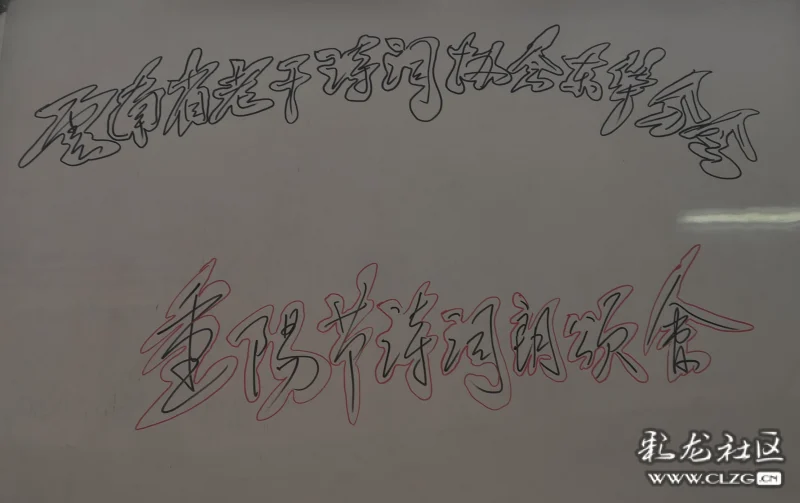 雲南省老干诗词协会东华分会
重陽节诗词朗颂會
彩龙社区
WWW.CLZG.CN